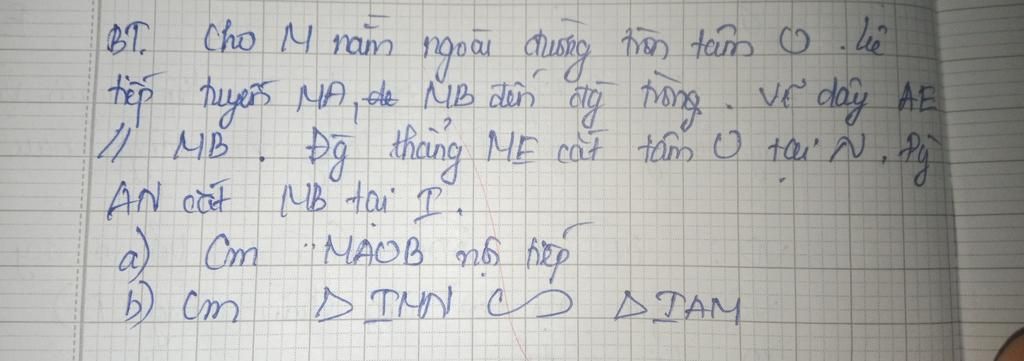 BT. Cho M nằm ngoài đường tròn tâm O. kẻ
tiếp tuyến MA, MB đến đg tròng. Vẽ dây AE
// MB. Đg thẳng ME cắt tâm O tại N. Đg
AN cắt MB tại I.
a) Cm MAOB nội tiếp
b) Cm Δ IMN ∽ Δ IAM